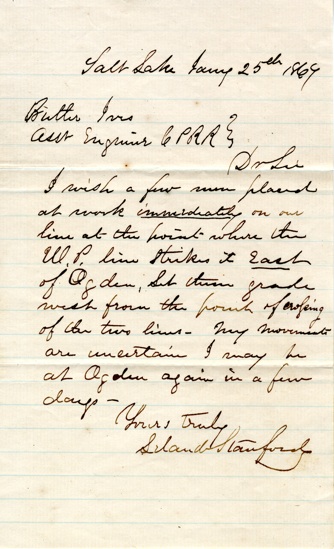 Salt Lake Jany 25th 1869
Butler Ives
Asst Engineer C P R R }
Dr Sir
I wish a few men placed
at work immediately on our
line at the point where the
U.P. line strikes it East
of Ogden, Let them grade
west from the point of crossing
of the two lines - My movements
are uncertain I may be
at Ogden again in a few
days -
Yours truly
Leland Stanford